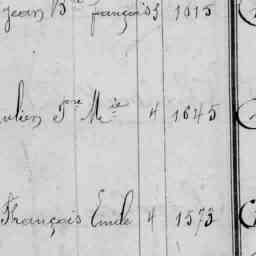 Jean Bte françois 3 1015
ulien Pre Mie 4 1645
François Emile 4 1573